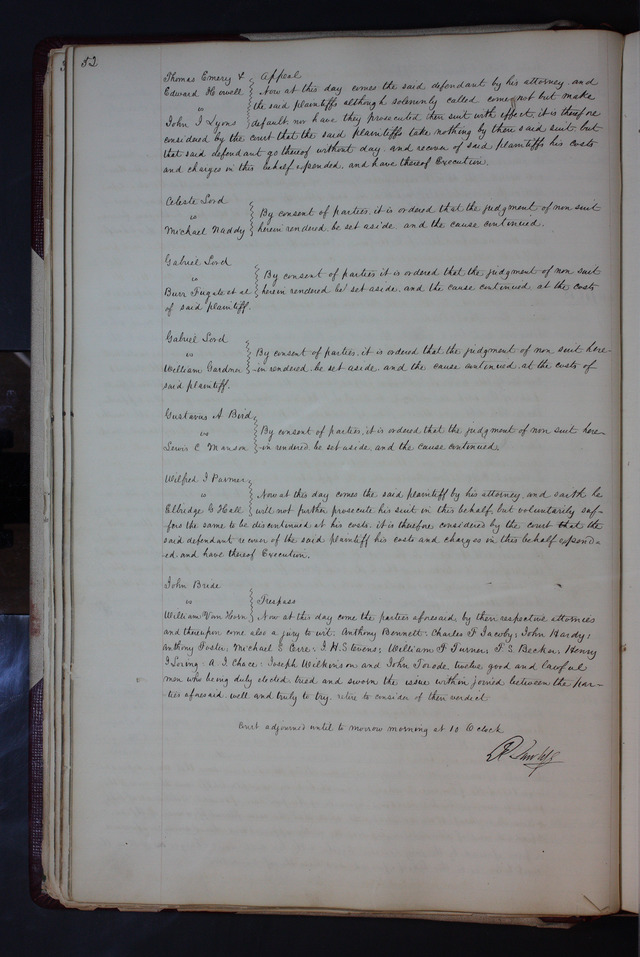 82
Thomas Emery & } Appeal
Edward Howell } Now at this day comes the said defendant by his attorney and
vs } the said plaintiffs although solemnly called come not but make
John I Lyons } default, nor have they prosecuted their suit with effect, it is therefore
considered by the court that the said plaintiffs take nothing by their said suit, but
that said defendant go thereof without day, and recover of said plaintiffs his costs
and charges in this behalf expended, and have thereof Execution.
Celeste Lord
vs } By consent of parties, it is ordered that the judgment of non suit
Michael Naddy } herein rendered be set aside and the cause continued.
Gabriel Lord
vs } By consent of parties it is ordered that the judgment of non suit
Burr Fugate et al } herein rendered be set aside, and the cause continued at the costs
of said plaintiff.
Gabriel Lord
vs } By consent of parties, it is ordered that the judgment of non suit here-
William Gardner } -in rendered, be set aside and the cause continued, at the costs of
said plaintiff.
Gustavus A Bird
vs } By consent of parties, it is ordered that the judgment of non suit here
Lewis C Manson } -in rendered be set aside, and the cause continued.
Wilfred I Parmer
vs } Now at this day comes the said plaintiff by his attorney, and saith he
Elbridge G Hall } will not further prosecute his suit in this behalf, but voluntarily suf-
fers the same to be discontinued at his costs. it is therefore considered by the court that the
said defendant recover of the said plaintiff his costs and charges in this behalf expend=
ed, and have thereof Execution.
John Bride
vs } Trespass
William Van Horn } Now at this day come the parties aforesaid, by their respective attornies
and thereupon come also a jury to wit, Anthony Bennett: Charles F Jacoby; John Hardy;
Anthony Foster; Michael S Cerre: I. H. Stevens; William F Turner; F. S. Becker; Henry
I Loring: A. I. Chace: Joseph Wilkinson and John Torode, twelve good and lawful
men who being duly elected, tried and sworn the issue within joined between the par-
ties aforesaid well and truly to try, retire to consider of their verdict.
Court adjourned until to morrow morning at 10 O clock